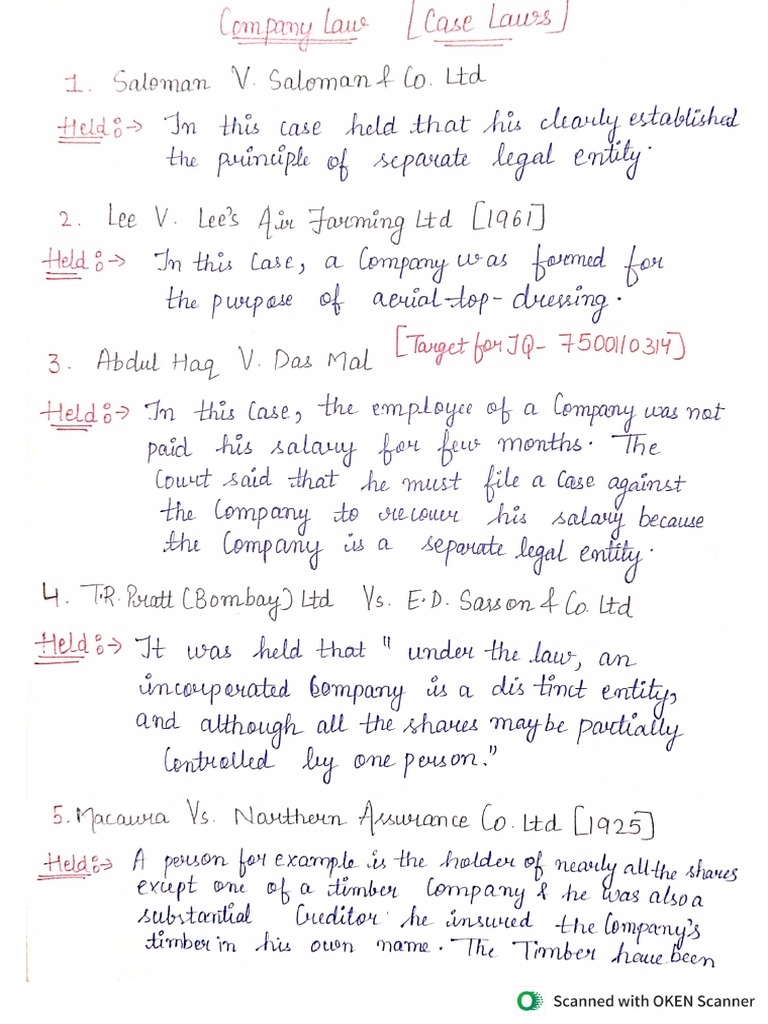 Company Law [Case Laws]
1. Saloman V. Saloman & Co. Ltd
Held:-> In this case held that his clearly established
the principle of separate legal entity.
2. Lee V. Lee's Air Farming Ltd [1961]
Held:-> In this Case, a Company was formed for
the purpose of aerial-top-dressing.
3. Abdul Haq V. Das Mal [Target for JQ- 75001/0314]
Held:-> In this Case, the employee of a Company was not
paid his salary for few months. The
Court said that he must file a case against
the Company to recover his salary because
the Company is a separate legal entity.
4. T.R. Pratt (Bombay) Ltd Vs. E.D. Sasson & Co. Ltd
Held:-> It was held that " under the law, an
incorporated Company is a distinct entity,
and although all the shares may be partially
Controlled by one person."
5. Macaura Vs. Narthern Assurance Co. Ltd [1925]
Held:-> A person for example is the holder of nearly all the shares
except one of a timber Company & he was also a
substantial Creditor he insured the Company's
timber in his own name. The Timber have been
Scanned with OKEN Scanner